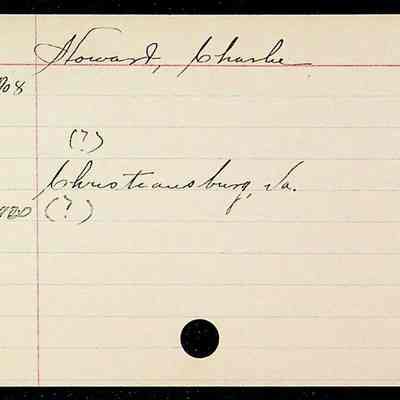 Howard, Charlie
708
(?)
Christiansburg, Va.
(?)